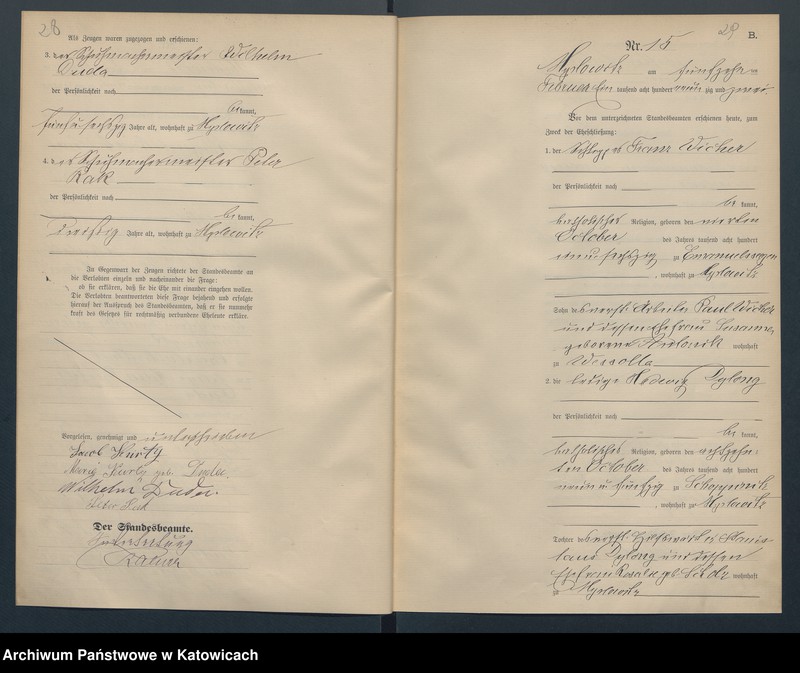 28
Als Zeugen waren zugezogen und erschienen:
3. der Schuhmachermeister Wilhelm
Duda
der Persönlichkeit nach
be kannt,
fünfundsechzig Jahre alt, wohnhaft zu Myslowitz
4. der Schuhmachermeister Peter
der Persönlichkeit nach
be kannt,
dreißig Jahre alt, wohnhaft zu Myslowitz
In Gegenwart der Zeugen richtete der Standesbeamte an
die Verlobten einzeln und nacheinander die Frage:
ob sie erklären, daß sie die Ehe mit einander eingehen wollen.
Die Verlobten beantworteten diese Frage bejahend und erfolgte
hierauf der Ausspruch des Standesbeamten, daß er sie nunmehr
kraft des Gesetzes für rechtmäßig verbundene Eheleute erkläre.
Vorgelesen, genehmigt und unterschrieben
Jacob Kurtz
Maria Kurtz geb. Duda.
Wilhelm Duda.
Der Standesbeamte.
In Vertretung
29
B.
Nr. 15
Myslowitz am fünfzehn
Februar Ein tausend acht hundert neun zig und zwei
Vor dem unterzeichneten Standesbeamten erschienen heute, zum
Zweck der Eheschließung:
1. der Schlepper Franz Wicher
der Persönlichkeit nach
be kannt,
katholischer Religion, geboren den vierten
October des Jahres tausend acht hundert
sechszig zu Emanuelssegen
, wohnhaft zu Myslowitz
Sohn des verst. Arbeiter Paul Wicher
und dessen Ehefrau Susanna,
geborene wohnhaft
zu Wessolla
2. die ledige Hedwig Dylong
der Persönlichkeit nach
be kannt,
katholischer Religion, geboren den achtzehn-
ten October des Jahres tausend acht hundert
neun u fünfzig zu Schoppinitz
, wohnhaft zu Myslowitz
Tochter des verst. Stanis-
laus Dylong und dessen
Ehefrau Rosalie geb. wohnhaft
zu Myslowitz
Archiwum Państwowe w Katowicach